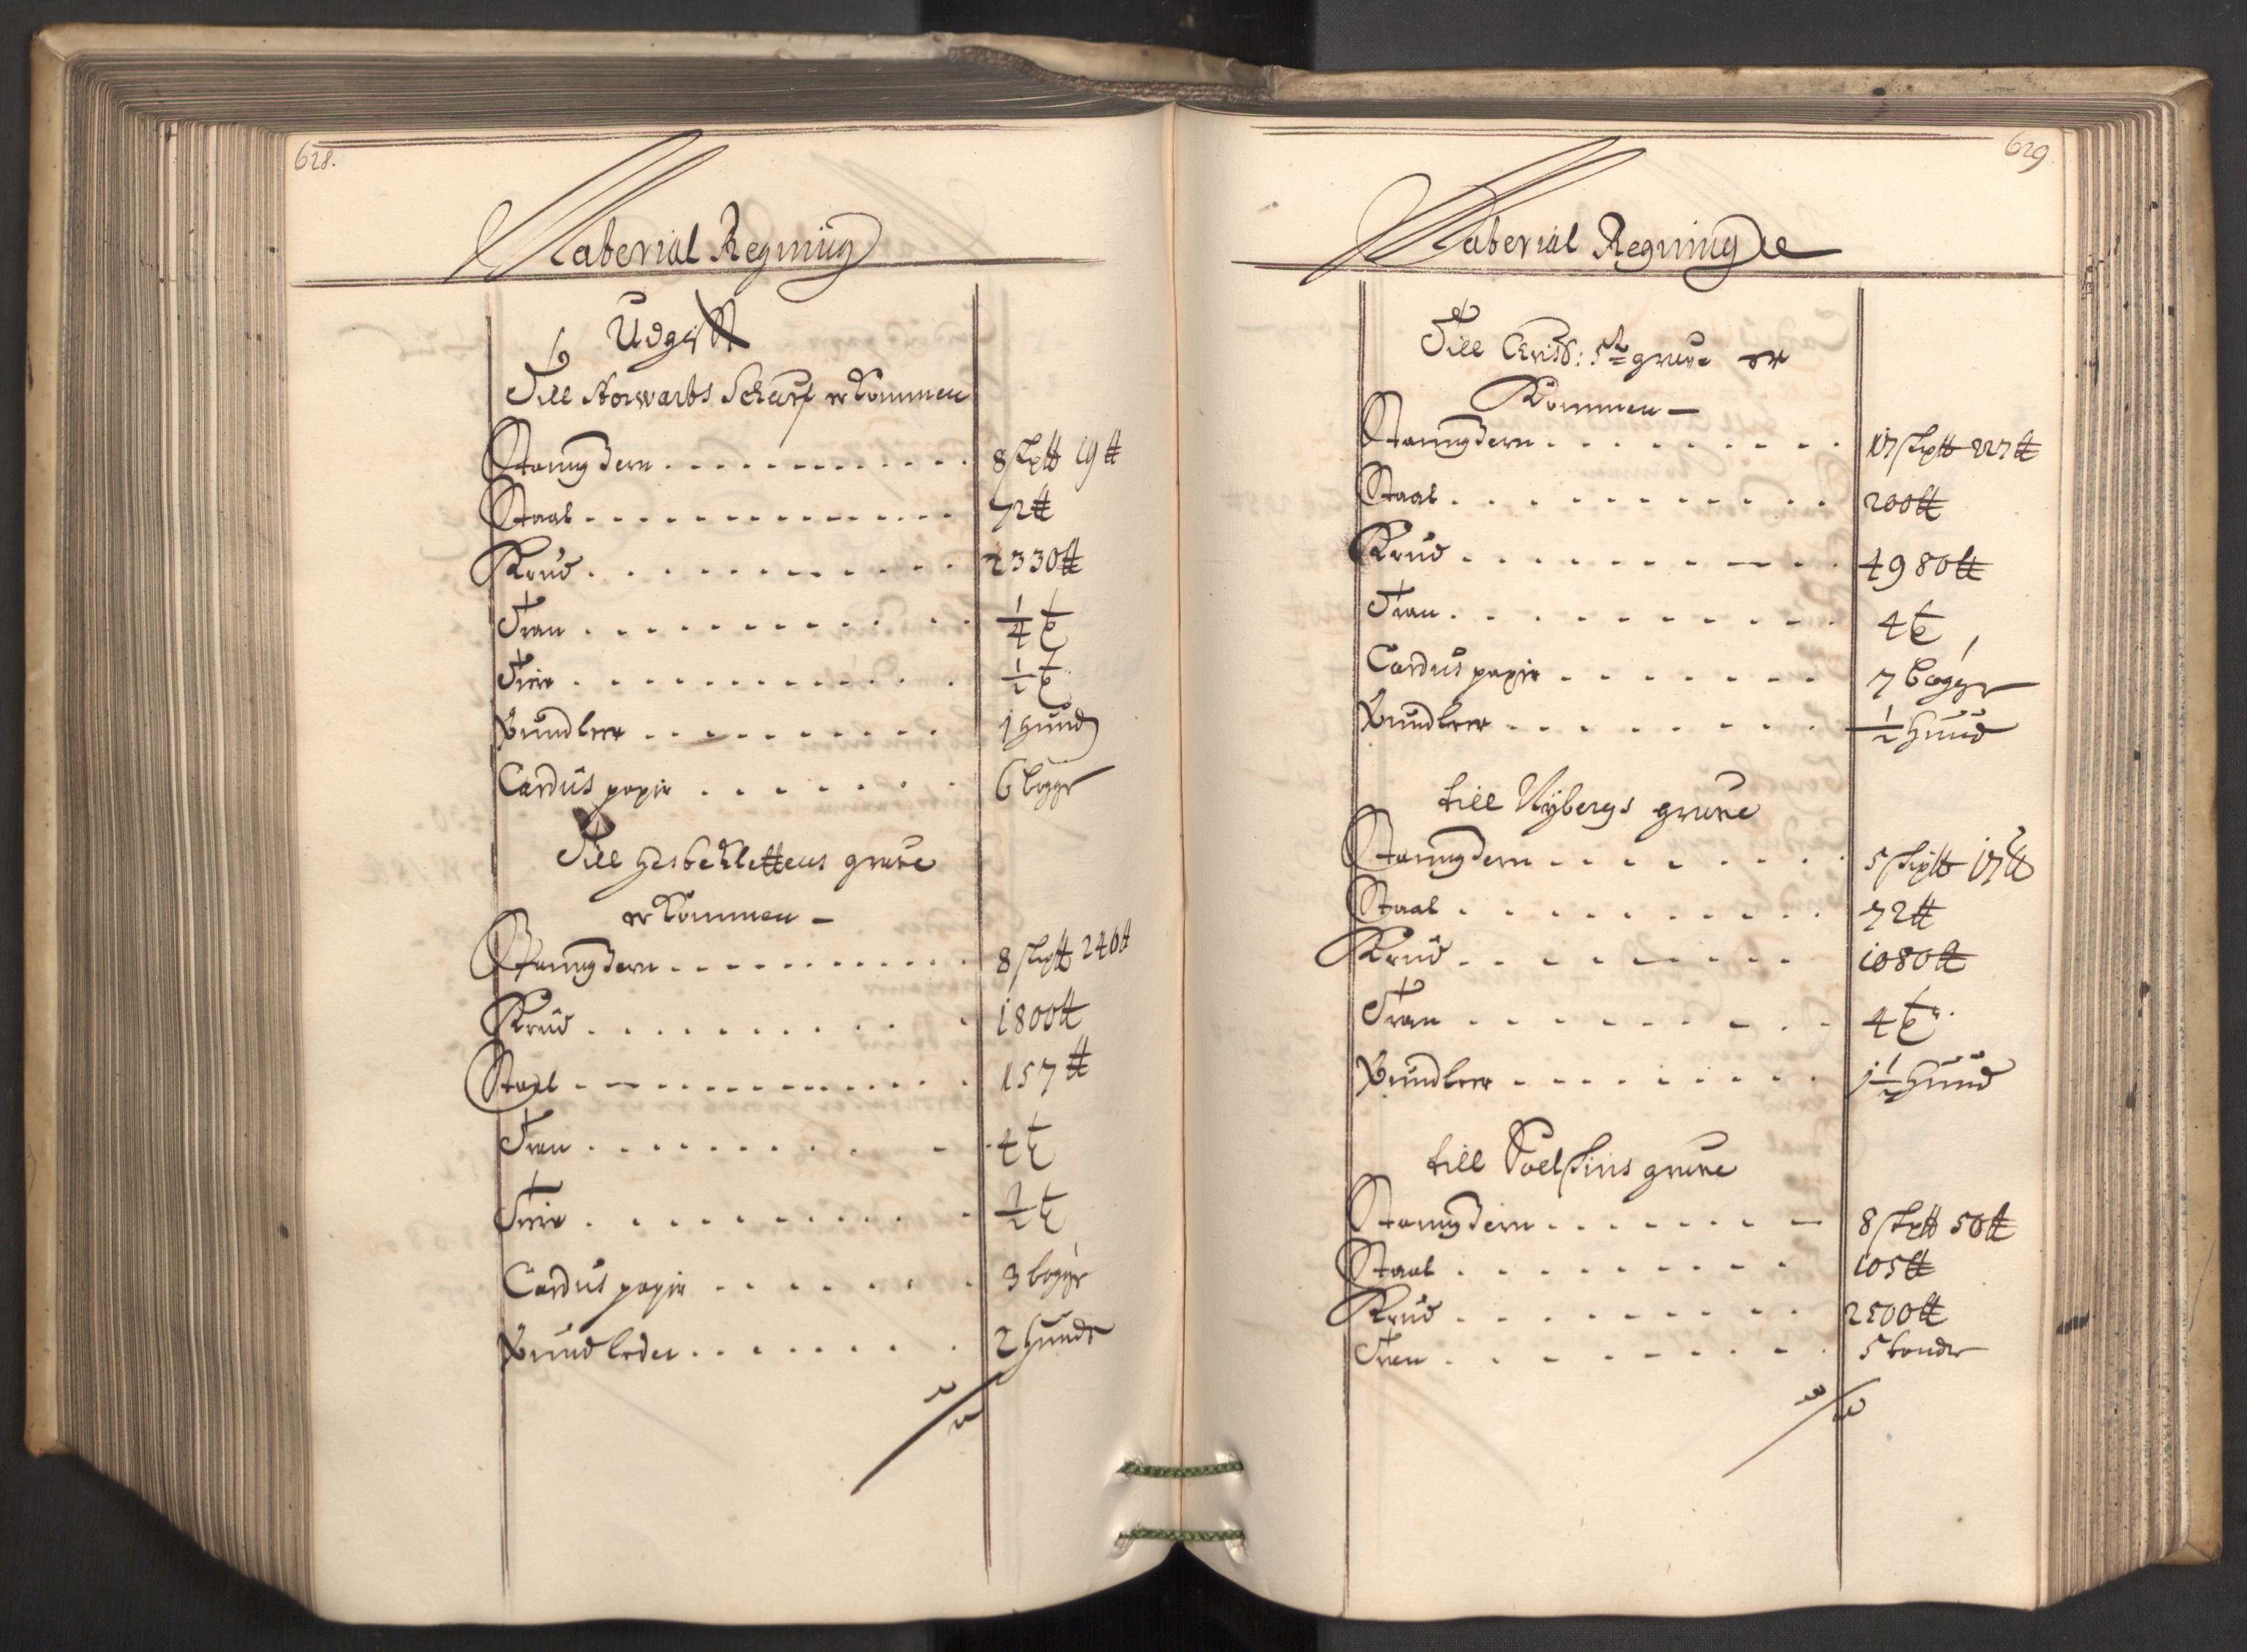 628.
Material Regning
Udgifft
Till Norwarts Schurf er kommen
Stangjern . . . 8 skp℔ 19 ℔
Staal . . . 72 ℔
Krud . . . 2330 ℔
Tran . . . 1/4 t
Tiere . . . 1/2 t
Bundleer . . . 1 hund
Cardus papir . . . 6 bøgger
Till Hesteklettens gruve
er kommen –
Stangjern . . . 8 skp℔ 240 ℔
Krud . . . 1800 ℔
Staal . . . 157 ℔
Tran . . . 4 t
Tiere . . . 1/2 t
Cardus papir . . . 3 bøgger
Bundleder . . . 2 hunde
629
Material Regning
Till Christ: 5te gruve er
kommen –
Stangjern . . . 17 skp℔ 227 ℔
Staal . . . 200 ℔
Krud . . . 4980 ℔
Tran . . . 4 t
Cardus papir . . . 7 bøgger
Bundleer . . . 1/2 hund
till Nybergs gruve
Stangjern . . . 5 skp℔ 17 ℔
Staal . . . 72 ℔
Krud . . . 1080 ℔
Tran . . . 4 t
Bundleer . . . 1 1/2 hund
till gruve
Stangjern . . . 8 skp℔ 50 ℔
Staal . . . 105 ℔
Krud . . . 2500 ℔
Tran . . . 5 tonder